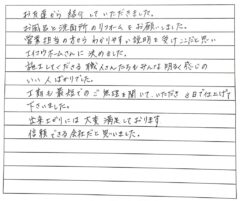 お友達から紹介していただきました。
お風呂と洗面所のリフォームをお願いしました。
営業担当の方からわかりやすい説明を受けここだと思い
エイコウホームさんに決めました。
施工してくださる職人さんたちもみんな明るく感じの
いい人ばかりでした。
工期も最短でのご無理を聞いていただき 8日で仕上げて
下さいました。
出来上がりには大変満足しております
信頼できる会社だと思いました。